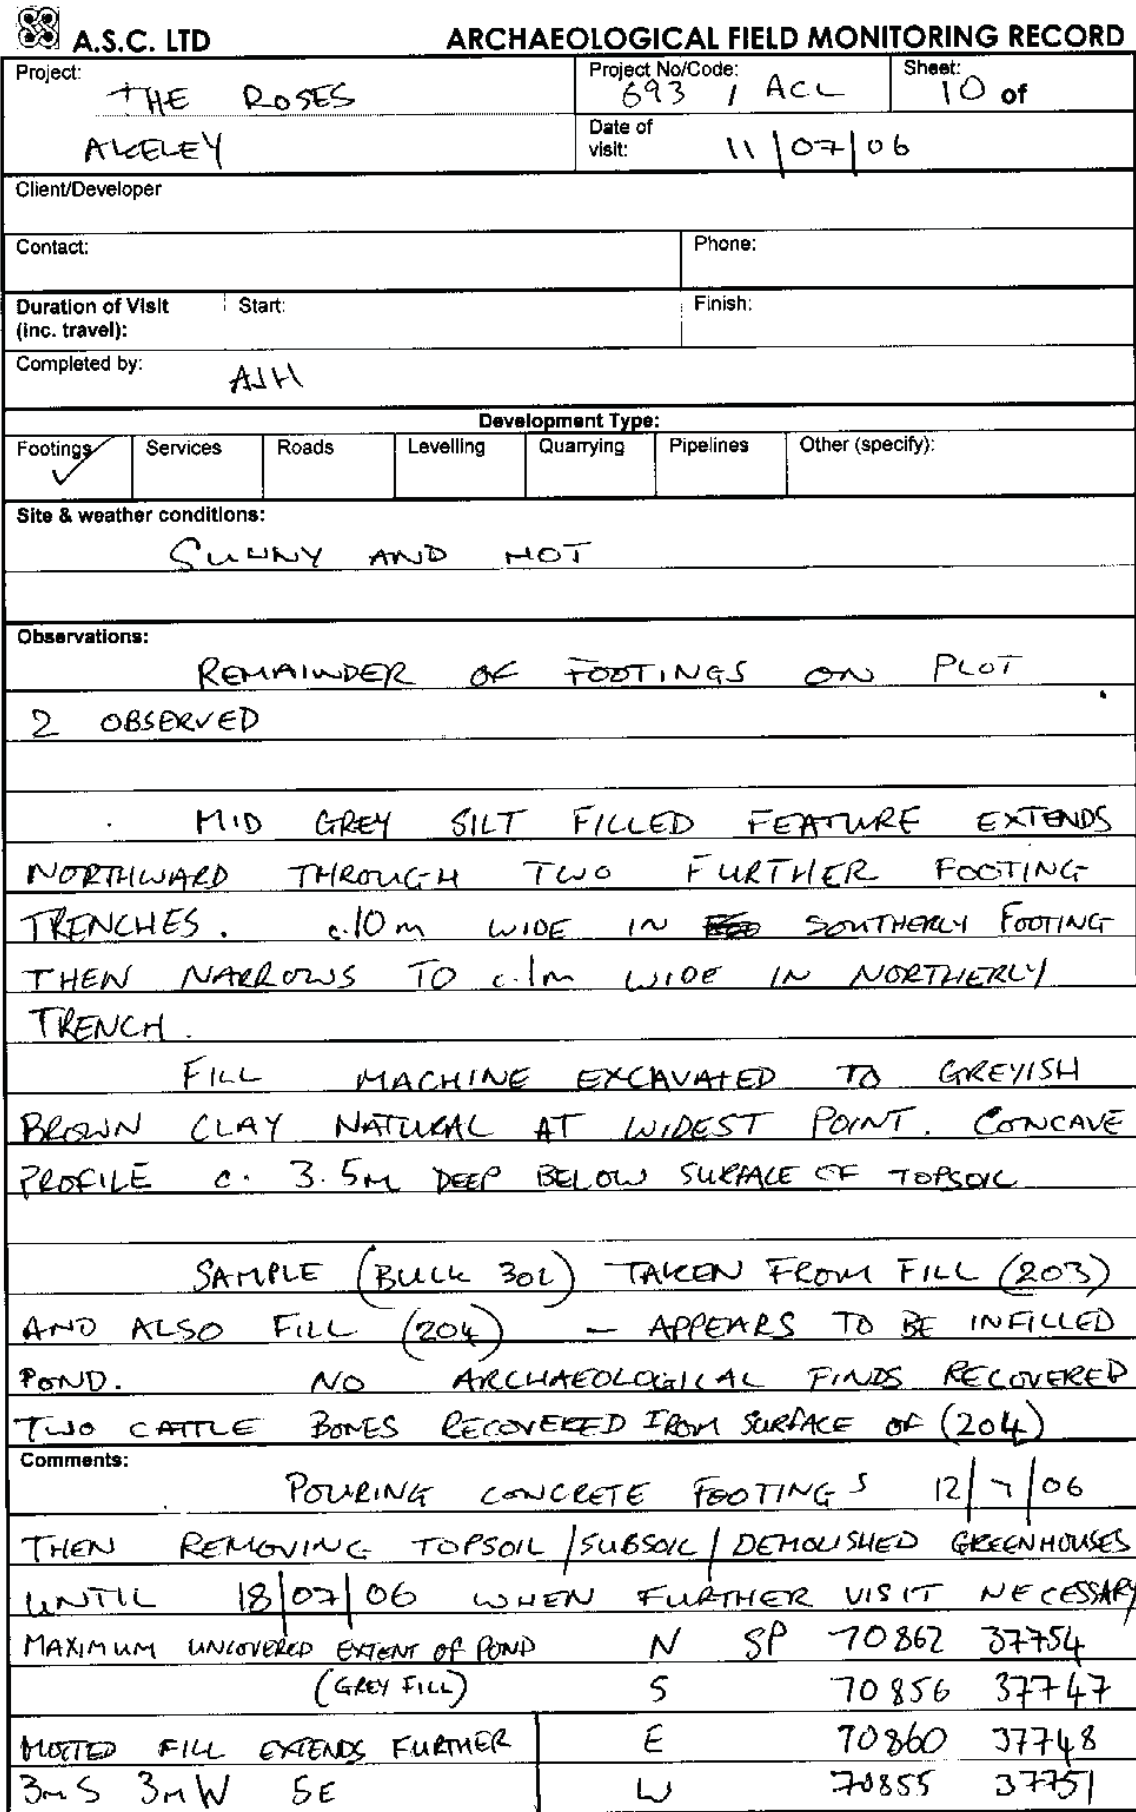 A.S.C. LTD ARCHAEOLOGICAL FIELD MONITORING RECORD
Project: THE ROSES
AKELEY
Project No/Code: 693 / ACL
Sheet: 10 of
Date of visit: 11/07/06
Client/Developer
Contact: Phone:
Duration of Visit (inc. travel): Start: Finish:
Completed by: AJH
Development Type:
Footings ✓ Services Roads Levelling Quarrying Pipelines Other (specify):
Site & weather conditions:
SUNNY AND HOT
Observations:
REMAINDER OF FOOTINGS ON PLOT
2 OBSERVED
MID GREY SILT FILLED FEATURE EXTENDS
NORTHWARD THROUGH TWO FURTHER FOOTING
TRENCHES. c.10m WIDE IN SOUTHERLY FOOTING
THEN NARROWS TO c.1m WIDE IN NORTHERLY
TRENCH.
FILL MACHINE EXCAVATED TO GREYISH
BROWN CLAY NATURAL AT WIDEST POINT. CONCAVE
PROFILE c. 3.5m DEEP BELOW SURFACE OF TOPSOIL
SAMPLE (BULK 30L) TAKEN FROM FILL (203)
AND ALSO FILL (204) – APPEARS TO BE INFILLED
POND. NO ARCHAEOLOGICAL FINDS RECOVERED
TWO CATTLE BONES RECOVERED FROM SURFACE OF (204)
Comments:
POURING CONCRETE FOOTINGS 12/7/06
THEN REMOVING TOPSOIL/SUBSOIL/DEMOLISHED GREENHOUSES
UNTIL 18/07/06 WHEN FURTHER VISIT NECESSARY
MAXIMUM UNCOVERED EXTENT OF POND N SP 70862 37754
(GREY FILL) S 70856 37747
MOTTED FILL EXTENDS FURTHER E 70860 37748
3m S 3m W 5E W 70855 37751